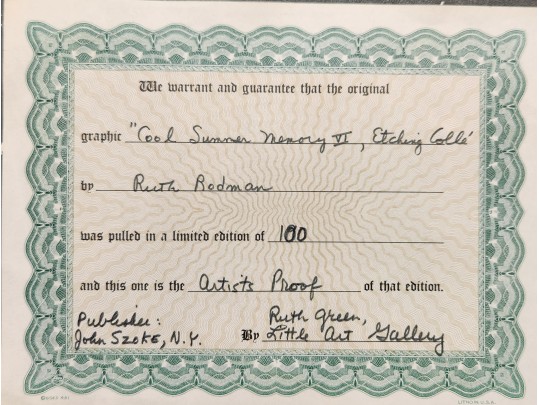 We warrant and guarantee that the original
graphic "Cool Summer Memory VI, Etching Collé"
by Ruth Rodman
was pulled in a limited edition of 100
and this one is the Artist's Proof of that edition.
Publisher: Ruth Green,
John Szoke, N.Y. By Little Art Gallery
LITHO IN U.S.A.